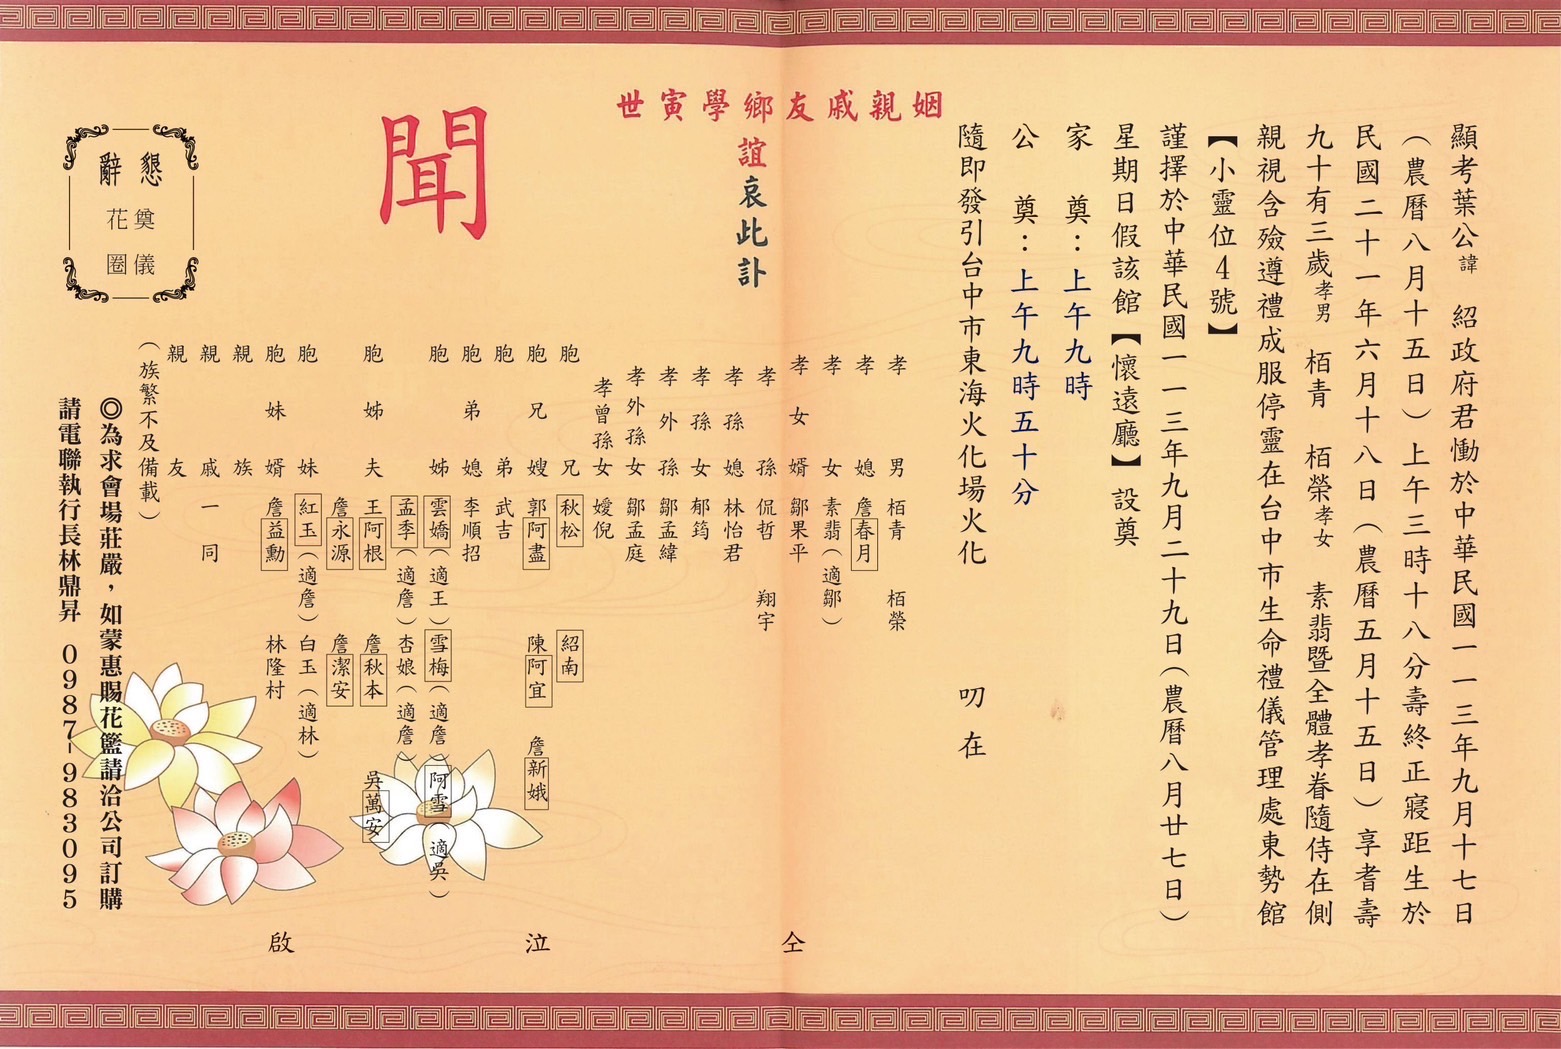 顯考葉公諱紹政府君慟於中華民國一一三年九月十七日
（農曆八月十五日）上午三時十八分壽終正寢距生於
民國二十一年六月十八日（農曆五月十五日）享耆壽
九十有三歲孝男栢青栢榮孝女素翡暨全體孝眷隨侍在側
親視含殮遵禮成服停靈在台中市生命禮儀管理處東勢館
【小靈位4號】
謹擇於中華民國一一三年九月二十九日（農曆八月廿七日）
星期日假該館【懷遠廳】設奠
家奠：上午九時
公奠：上午九時五十分
隨即發引台中市東海火化場火化 叨在
姻親戚友鄉學寅世
誼哀此訃
聞
孝男 栢青 栢榮
孝媳 詹春月
孝女 素翡（適鄒）
孝女婿 鄒果平
孝孫 侃哲 翔宇
孝孫媳 林怡君
孝孫女 郁筠
孝外孫 鄒孟緯
孝外孫女 鄒孟庭
孝曾孫女 嫒倪
胞兄 秋松 紹南
胞兄嫂 郭阿盡 陳阿宜 詹新娥
胞弟 武吉
胞弟媳 李順招
胞姊 雲嬌（適王）雪梅（適詹）阿雪（適吳）
孟李（適詹）杏娘（適詹）
胞姊夫 王阿根 詹秋本 吳萬安
詹永源 詹潔安
胞妹 紅玉（適詹）白玉（適林）
胞妹婿 詹益勳 林隆村
親族
親戚一同
親友
（族繁不及備載）
仝泣啟
懇辭
奠儀
花圈
◎為求會場莊嚴，如蒙惠賜花籃請洽公司訂購
請電聯執行長林鼎昇 0987-983095